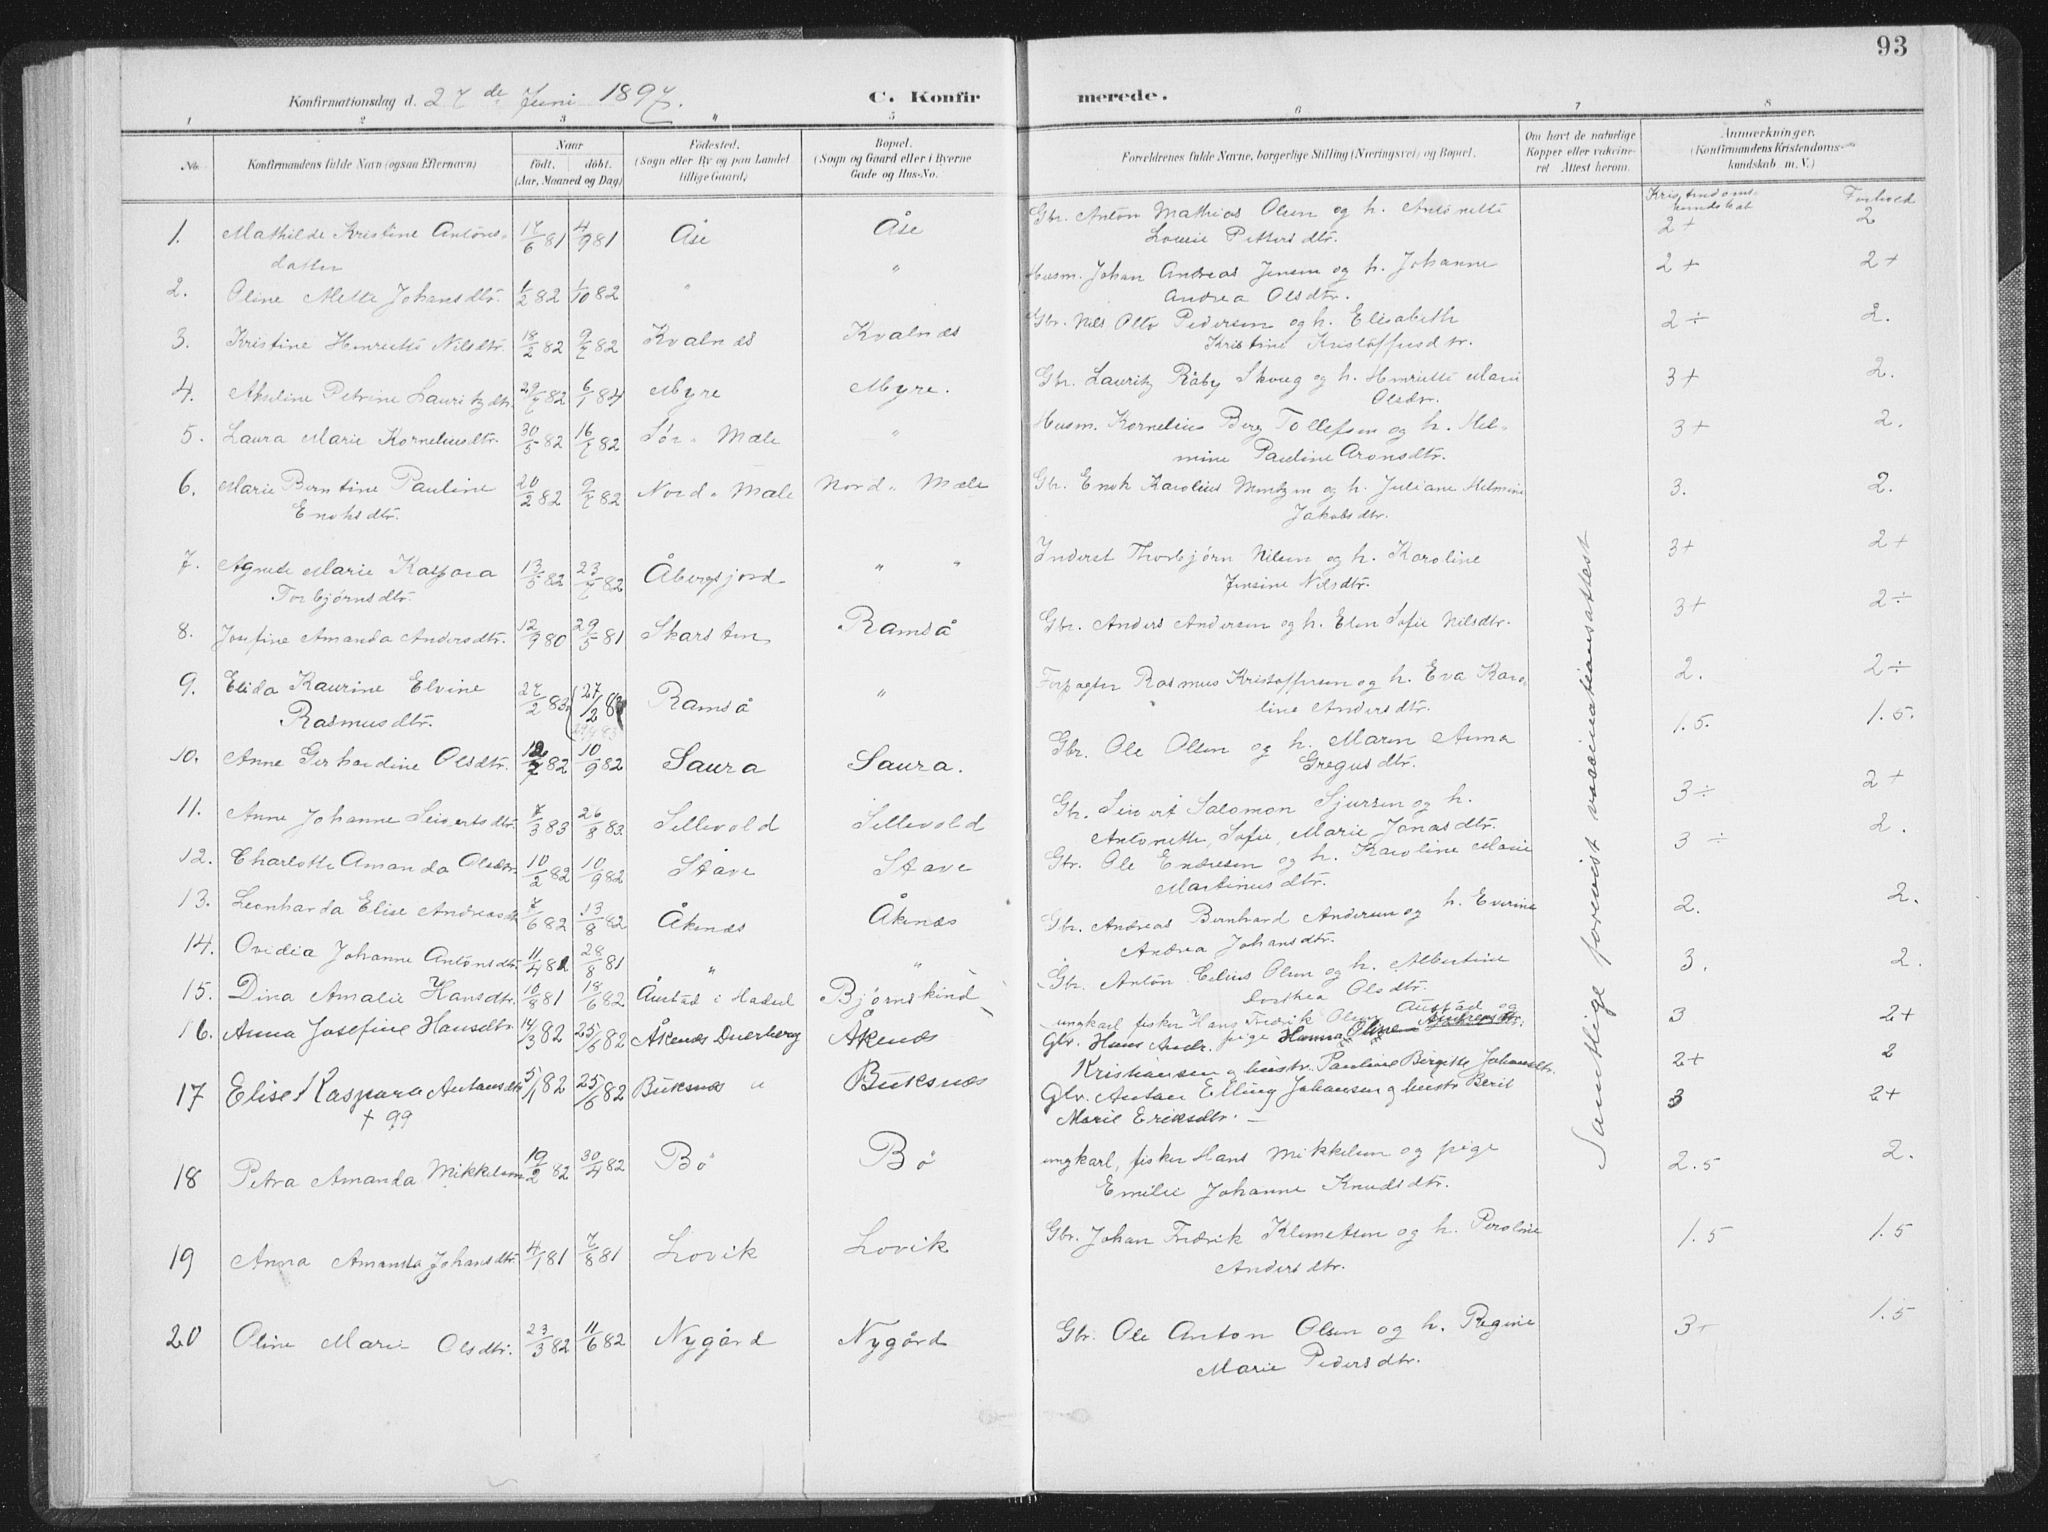 93
Konfirmationsdag d. 27de Juni 1897.
C. Konfirmerede.
1 2 3 " 5 6 7 8
No. Konfirmandens fulde Navn (ogsaa Efternavn) Naar født, døbt. (Aar, Maaned og Dag) Fødested. (Sogn eller By og paa Landet tillige Gaard) Bopæl. (Sogn og Gaard eller i Byerne Gade og Hus-No. Forældrenes fulde Navne, borgerlige Stilling (Næringsvei) og Bopæl. Om havt de naturlige Kopper eller vakcineret Attest herom. Anmærkninger. (Konfirmandens Kristendomskundskab m. V.)
Kristendomskundskab Forhold
1. Mathilde Kristine Antonsdatter 17/6 81 4/9 81 Åse Åse Gbr. Anton Mathias Olsen og h. Antonette Lowise Petters dtr. 2+ 2
2. Oline Mette Johansdtr. 1/2 82 1/10 82 " " Husm. Johan Andreas Jensen og h. Johanne Andrea Olsdtr. 2+ 2+
3. Kristine Henriette Nilsdtr. 18/2 82 9/7 82 Kvalnæs Kvalnæs Gbr. Nils Otto Pedersen og h. Elisabeth Kristine Kristoffersdtr. 2÷ 2.
4. Akseline Petrine Lauritzdtr. 29/7 82 6/1 84 Myre Myre. Gbr. Lauritz Råby Skoug og h. Henriette Marie Olsdtr. 3+ 2.
5. Laura Marie Korneliusdtr. 30/5 82 16/7 82 Sør-Mæle " Husm. Kornelius Berg Tollefsen og h. Helmine Pauline Aronsdtr. 3+ 2.
6. Marie Berntine Pauline Enoksdtr. 20/2 82 9/7 82 Nord-Mæle Nord-Mæle Gbr. Enok Karolius Mentzen og h. Juliane Helmine Jakobsdtr. 3. 2.
7. Agnete Marie Kaspara Torbjørnsdtr. 13/5 82 23/7 82 Åbergsjord " " Inderst Thorbjørn Nilsen og h. Karoline Jensine Nilsdtr. 3+ 2+
8. Josefine Amanda Andersdtr. 12/9 80 29/5 81 Skarsten Ramså Gbr. Anders Andersen og h. Elen Sofie Nilsdtr. 3+ 2÷
9. Elida Kaurine Elvine Rasmusdtr. 27/2 83 27/12 Ramså " Forpagter Rasmus Kristoffersen og h. Eva Karoline Andersdtr. 2. 2÷
10. Anne Gerhardine Olsdtr. 12/7 82 10/9 82 Saura Saura. Gbr. Ole Olsen og h. Maren Anna Gregusdtr. 1.5. 1.5.
11. Anne Johanne Seivertsdtr. 7/3 83 26/8 83 Sellevold Sellevold Gbr. Seivert Salomon Sjursen og h. Antonette, Sofie, Marie Jonasdtr. 3÷ 2+
12. Charlotte Amanda Olsdtr. 10/2 82 10/9 82 Stave Stave Gbr. Ole Endresen og h. Karoline Marie Martinusdtr. 3÷ 2.
13. Leonharda Elise Andreasdtr. 7/6 82 13/8 82 Åknæs Åknæs Gbr. Andreas Bernhard Andersen og h. Everine Andrea Johansdtr. 2. 2.
14. Ovidia Johanne Antonsdtr. 11/4 81 28/8 81 " " Gbr. Anton Edius Olsen og h. Albertine Dorthea Olsdtr. 3. 2.
15. Dina Amalie Hansdtr. 10/8 81 18/6 82 Åustad i Hadsel Bjørnskind ungkarl, fisker Hans Fredrik Olsen Austad og pige Hanna Oline Andreasdtr. 3 2+
16. Anna Josefine Hansdtr. 14/3 82 25/6 82 Åknæs Dverberg Åknæs Gbr. Hans Andr. Kristiansen og hustr. Pauline Birgitte Johansdtr. 2+ 2
17 Elise Kaspara Antonsdtr. † 99 5/1 82 25/6 82 Buksnæs " Buksnæs Gbr. Anton Elling Johansen og hustr Berit Marie Eriksdtr. 3 2+
18 Petra Amanda Mikkelsen 19/2 82 30/4 82 Bø Bø ungkarl, fisker Hans Mikkelsen og pige Emilie Johanne Knudsdtr. 2.5 2.
19 Anna Amanda Johansdtr. 4/1 81 7/8 81 Lovik Lovik Gbr. Johan Fredrik Klemetsen og h. Peroline Andersdtr. 1.5 1.5
20 Oline Marie Olsdtr. 23/3 82 11/6 82 Nygård Nygård Gbr. Ole Anton Olsen og h. Regine Marie Pedersdtr. 3+ 1.5
Samtlige forevist vaccinationsattest